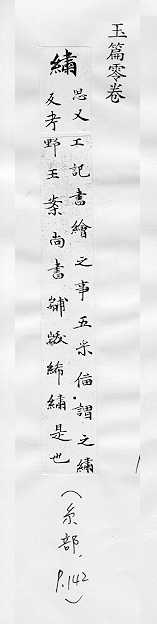 玉篇零卷
繡
思又工記畫繪之事五采俻謂之繡
反考野王案尚書黼黻絺繡是也
(糸部, P.142)